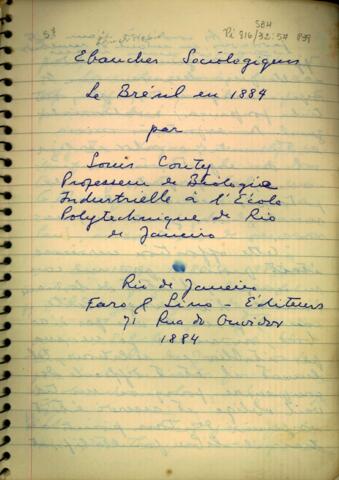 SBH
Pi 216/32:57 P99
Ebauches Sociologiques
Le Brésil en 1884
par
Louis Couty
Professeur de Biologie
Industrielle à l'École
Polytechnique de Rio
de Janeiro
Rio de Janeiro
Faro & Lino - Éditeurs
71 Rua do Ouvidor
1884